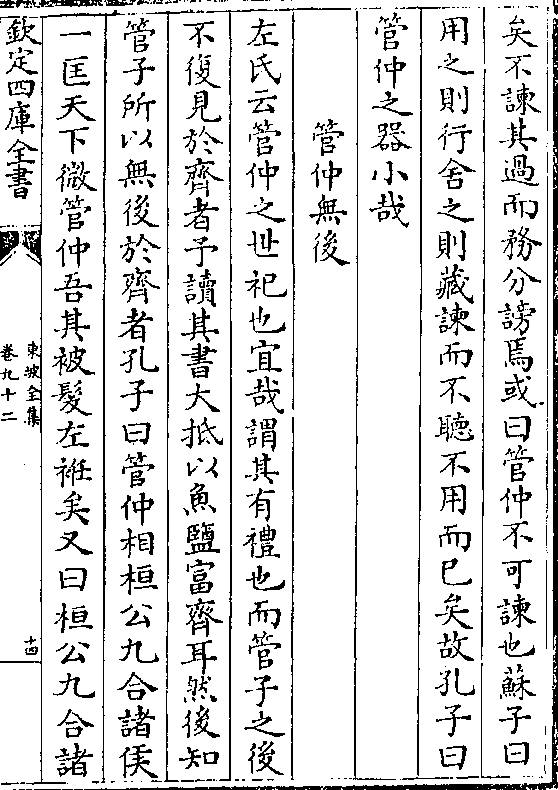 矣不諫其過而務分謗焉或曰管仲不可諫也蘇子曰
用之則行舍之則藏諫而不聽不用而已矣故孔子曰
管仲之器小哉
管仲無後
左氏云管仲之世祀也宜哉謂其有禮也而管子之後
不復見於齊者予讀其書大抵以魚鹽富齊耳然後知
管子所以無後於齊者孔子曰管仲相桓公九合諸侯
一匡天下微管仲吾其被髮左衽矣又曰桓公九合諸
欽定四庫全書
東坡全集
卷九十二
十四